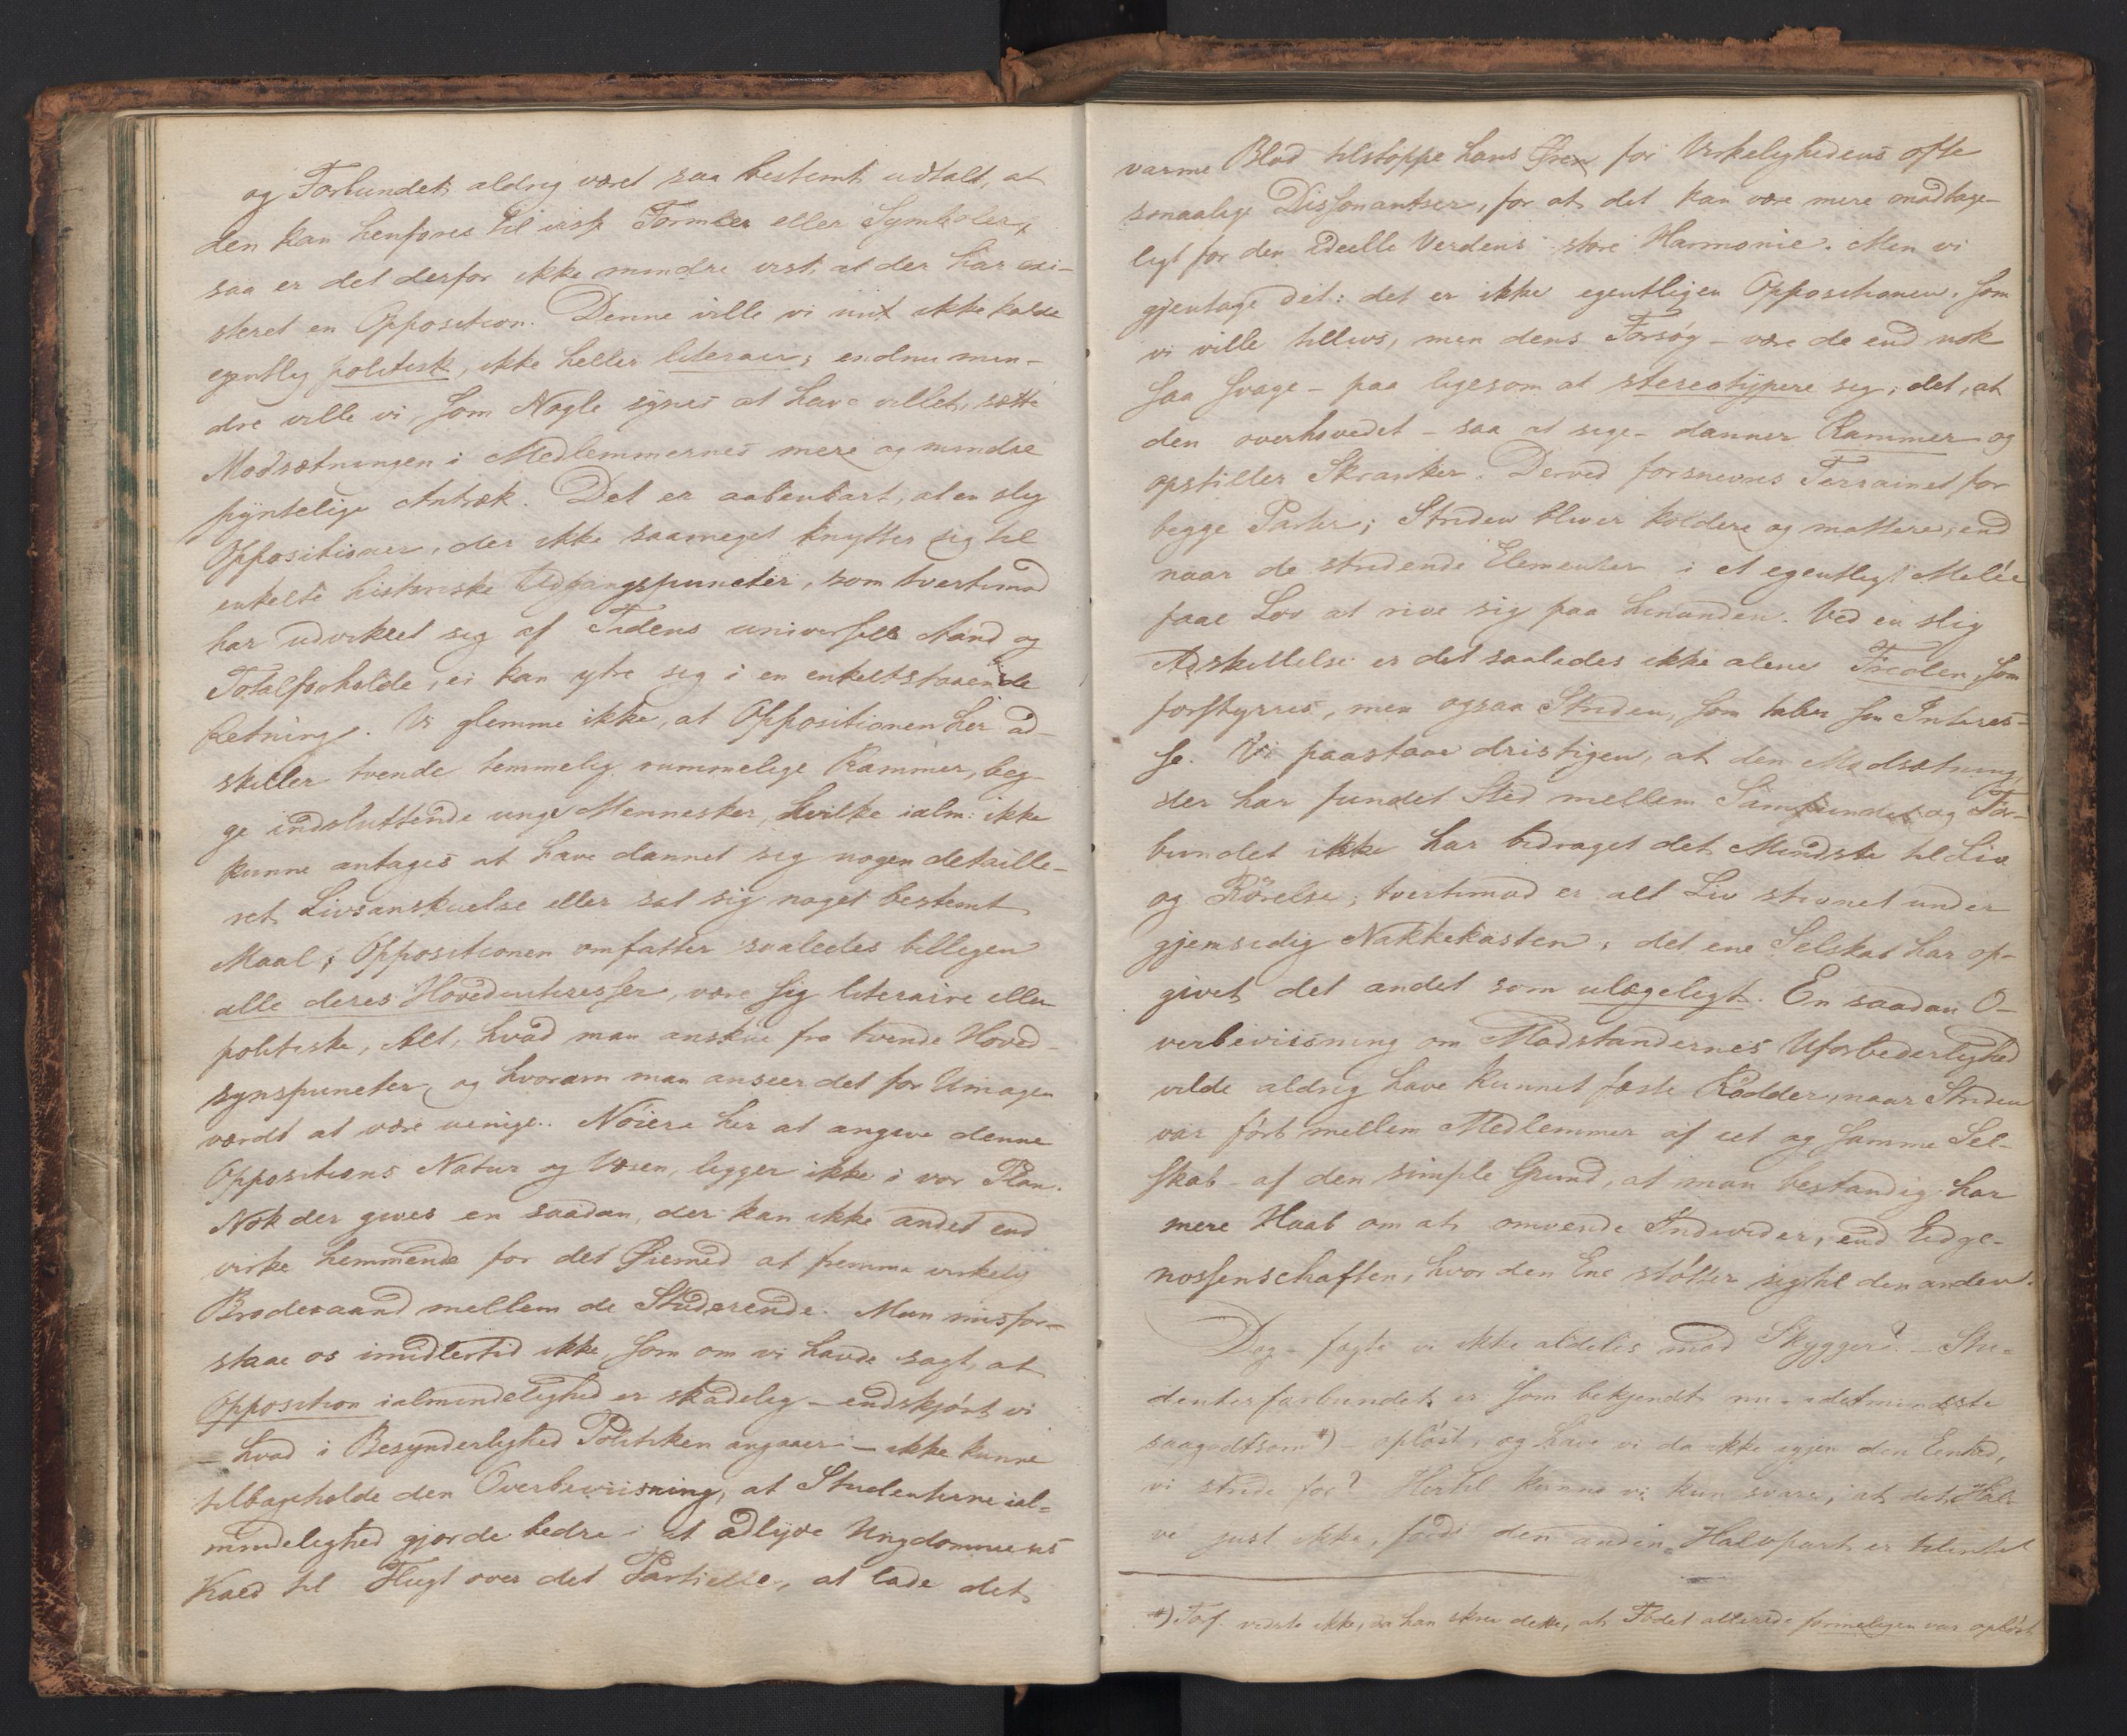 og Forbundets aldrig været saa bestemt udtalt, at
den kan henføres til visse Formler eller Symboler,
saa er det derfor ikke mindre vist, at der har exi-
steret en Opposition. Denne ville vi nu ikke kalde
egentlig politisk, ikke heller literair; endnu min-
dre ville vi som Nogle synes at have villet, sætte
Modsætningen i Medlemmernes mere og mindre
pyntelige Antræk. Det er aabenbart, at en slig
Opposition, der ikke saameget knytter sig til
enkelte historiske Udgangspuncter, som tvertimod
har udviklet sig af Tidens universelle Aand og
Totalforholde, ei kan yttre sig i en enkeltstaaende
Retning. Vi glemme ikke, at Oppositionen her ad-
skiller tvende temmelig rummelige Rammer, beg-
ge indsluttende unge Mennesker, hvilke ialm: ikke
kunne antages at have dannet sig nogen detaille-
ret Livsanskuelse eller sat sig noget bestemt
Maal; Oppositionen omfatter saaledes billigen
alle deres Hovedinteresser, være sig literaire eller
politiske, Alt, hvad man anskue fra tvende Hoved-
synspuncter og hvorom man anseer det for Umagen
værdt at være uenige. Nöiere her at angive denne
Oppositions Natur og Væsen, ligger ikke i vor Plan.
Nok der gives en saadan, der kan ikke andet end
virke hemmende for det Øiemed at fremme virkelig
Broderaand mellem de Studerende. Man misfor-
staae os imidlertid ikke, som om vi havde sagt, at
Opposition ialmindelighed er skadelig – endskjönt vi
– hvad i Besynderlighed Politiken angaaer – ikke kunne
tilbageholde den Overbeviisning, at Studenterne ial-
mindelighed gjorde bedre i at adlyde Ungdommens
Kald til Flugt over det Partielle, at lade det
varme Blod tilstoppe hans Øren for Virkelighedens ofte
smaalige Dissonantser, for at det kan være mere modtage-
ligt for den ideelle Verdens store Harmonie. Men vi
gjentage det: det er ikke egentligen Oppositionen, som
vi ville tillivs, men dens Forsøg – være de end nok
saa svage – paa ligesom at stereotypere sig; det, at
den overhovedet – saa at sige – danner Rammer og
opstiller Skranker. Derved forsnevres Terrainet for
begge Parter; Striden bliver koldere og mattere, end
naar de stridende Elementer i et egentligt Melée
faae Lov at rive sig paa hinanden. Ved en slig
Adskillelse er det saaledes ikke alene Freden, som
forstyrres, men ogsaa Striden, som taber sin Interes-
se. Vi paastaae dristigen, at den Modsætning,
der har fundet Sted mellem Samfundet og For-
bundet ikke har bidraget det Mindste til Liv
og Rörelse; tvertimod er alt Liv stivnet under
gjensidig Nakkekasten; det ene Selskab har op-
givet det andet som ulægeligt. En saadan O-
verbeviisning om Modstandernes Uforbederlighed
vilde aldrig have kunnet fæste Rödder, naar Striden
var fört mellem Medlemmer af eet og samme Sel-
skab – af den simple Grund, at man bestandig har
mere Haab om at omvende Individer, end Eidge-
nossenschaften, hvor den Ene stötter sig til den anden.
Dog – fegte vi ikke aldeles mod Skygger? – Stu-
denterforbundet er som bekjendt nu – idetmindste
saagodtsom *) – oplöst, og have vi da ikke igjen den Eenhed,
vi stride for? Hertil kunne vi kun svare, at det Hal-
ve just ikke, fordi den anden Halvpart er tilintet
*) Forf. vidste ikke, da han skrev dette, at Fbdet allerede formeligen var oplöst